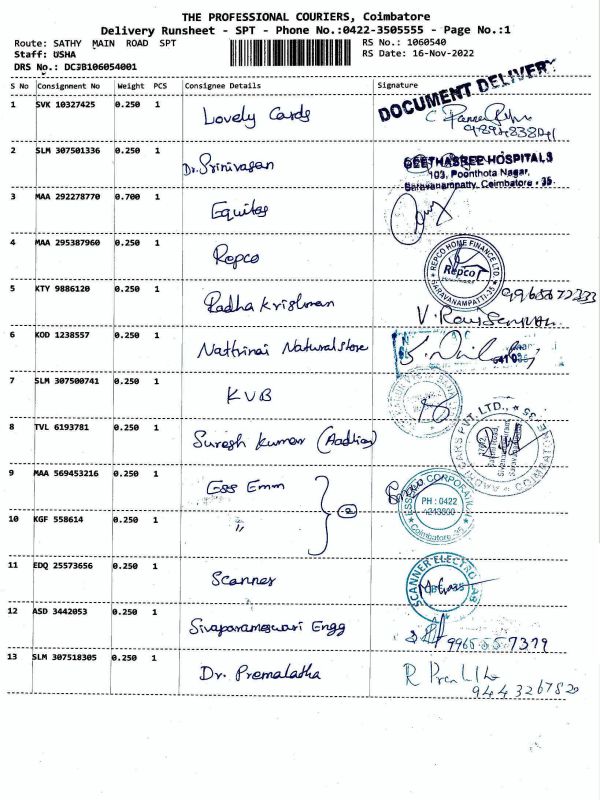 THE PROFESSIONAL COURIERS, Coimbatore
Delivery Runsheet - SPT - Phone No.:0422-3505555 - Page No.:1
Route: SATHY MAIN ROAD SPT
RS No.: 1060540
Staff: USHA
RS Date: 16-Nov-2022
DRS No.: DCJB106054001
S No Consignment No Weight PCS Consignee Details Signature
DOCUMENT DELIVERY
1 SVK 10327425 0.250 1 Lovely Cards
2 SLM 307501336 0.250 1 Dr. Srinivasan
GEETHASREE HOSPITALS
103, Poonthota Nagar,
Saravanampatty, Coimbatore - 35
3 MAA 292278770 0.700 1 Equitas
4 MAA 295387960 0.250 1 Repco
REPCO HOME FINANCE LTD.
Repco
SARAVANAMPATTI-35
5 KTY 9886120 0.250 1 Radha Krishnan
6 KOD 1238557 0.250 1 Nattrinai Natural store
7 SLM 307500741 0.250 1 KVB
8 TVL 6193781 0.250 1 Suresh Kumar
9 MAA 569453216 0.250 1 Ess Emm
PH : 0422
Coimbatore-35
10 KGF 558614 0.250 1 "
2
11 EDQ 25573656 0.250 1 Scanner
SCANNER ELECTRO
12 ASD 3442053 0.250 1 Sivaparameswari Engg
13 SLM 307518305 0.250 1 Dr. Premalatha